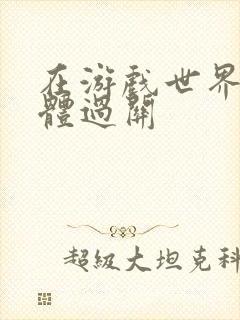 在游戲世界
體過關
超級大坦克科